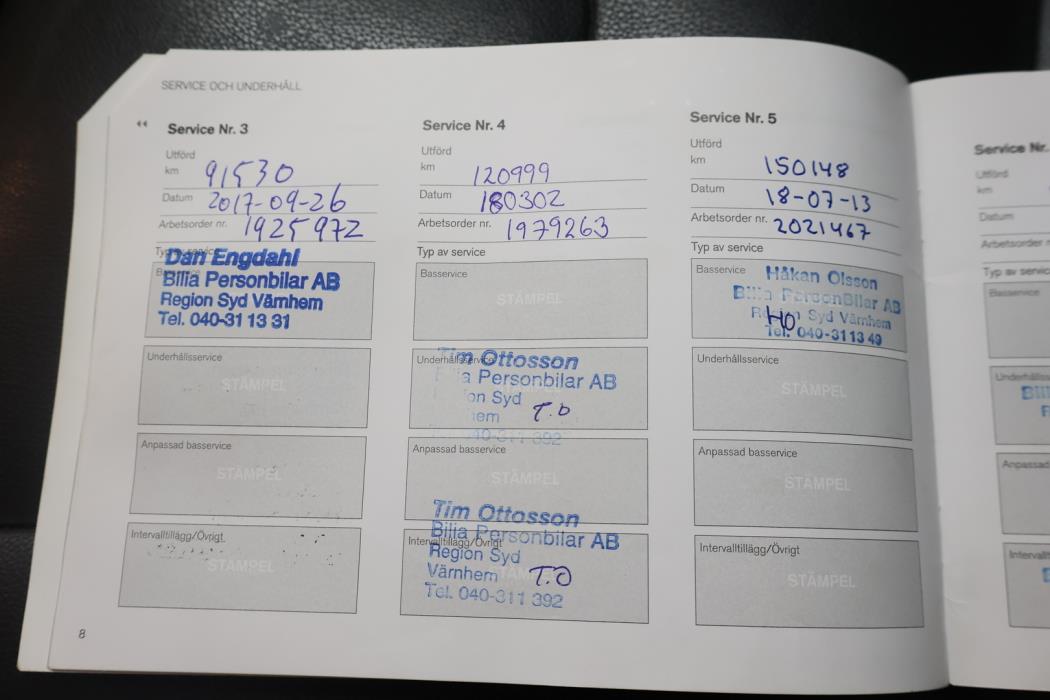 SERVICE OCH UNDERHÅLL
Service Nr. 3
Utförd
km 91530
Datum 2017-09-26
Arbetsorder nr. 1925972
Typ av service
Dan Engdahl
Bilia Personbilar AB
Region Syd Värnhem
Tel. 040-31 13 31
Underhållsservice
STÄMPEL
Anpassad basservice
STÄMPEL
Intervalltillägg/Övrigt
STÄMPEL
8
Service Nr. 4
Utförd
km 120999
Datum 180302
Arbetsorder nr. 1979263
Typ av service
Basservice
STÄMPEL
Underhållsservice
Tim Ottosson
Bilia Personbilar AB
Region Syd
Värnhem T.O
040-311 392
Anpassad basservice
STÄMPEL
Tim Ottosson
Bilia Personbilar AB
Intervalltillägg/Övrigt
Region Syd
Värnhem T.O
Tel. 040-311 392
Service Nr. 5
Utförd
km 150148
Datum 18-07-13
Arbetsorder nr. 2021467
Typ av service
Basservice
Håkan Olsson
Bilia PersonBilar AB
Region Syd Värnhem
HO
Tel. 040-311349
Underhållsservice
STÄMPEL
Anpassad basservice
STÄMPEL
Intervalltillägg/Övrigt
STÄMPEL
Service Nr.
Utförd
km
Datum
Arbetsorder
Typ av service
Basservice
Underhålls
Bili
Anpassad
Intervallt